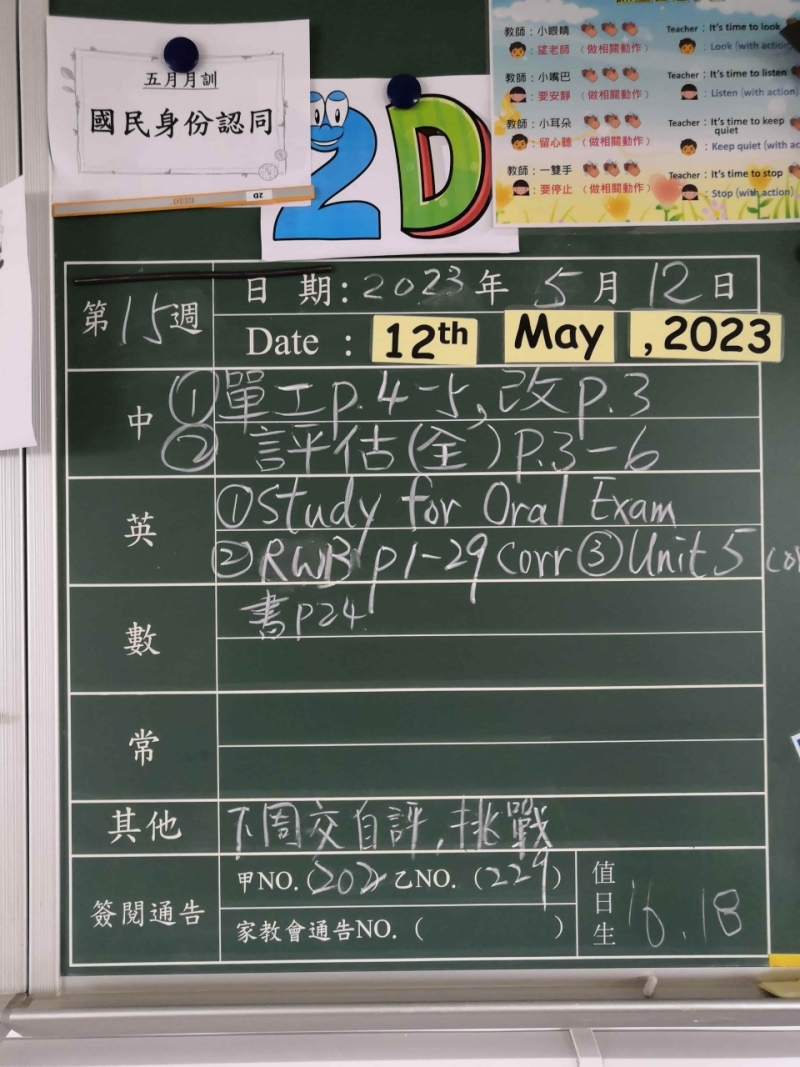 五月月訓
國民身份認同
2D
教師：小眼睛
：望老師（做相關動作）
教師：小嘴巴
：要安靜（做相關動作）
教師：小耳朵
：留心聽（做相關動作）
教師：一雙手
：要停止（做相關動作）
Teacher：It's time to look
：Look (with action)
Teacher：It's time to listen
：Listen (with action)
Teacher：It's time to keep
quiet
：Keep quiet (with ac
Teacher：It's time to stop
：Stop (with action)
第15週
日 期：2023年 5月 12日
Date : 12th May , 2023
中
①單工p.4-5,改p.3
②評估(全)P.3-6
英
①Study for Oral Exam
②RWB p1-29 corr ③Unit 5 cor
數
書p24
常
其他
下周交自評,挑戰
簽閱通告
甲NO.(202 乙NO.（229）
家教會通告NO.（ ）
值日生
16.18